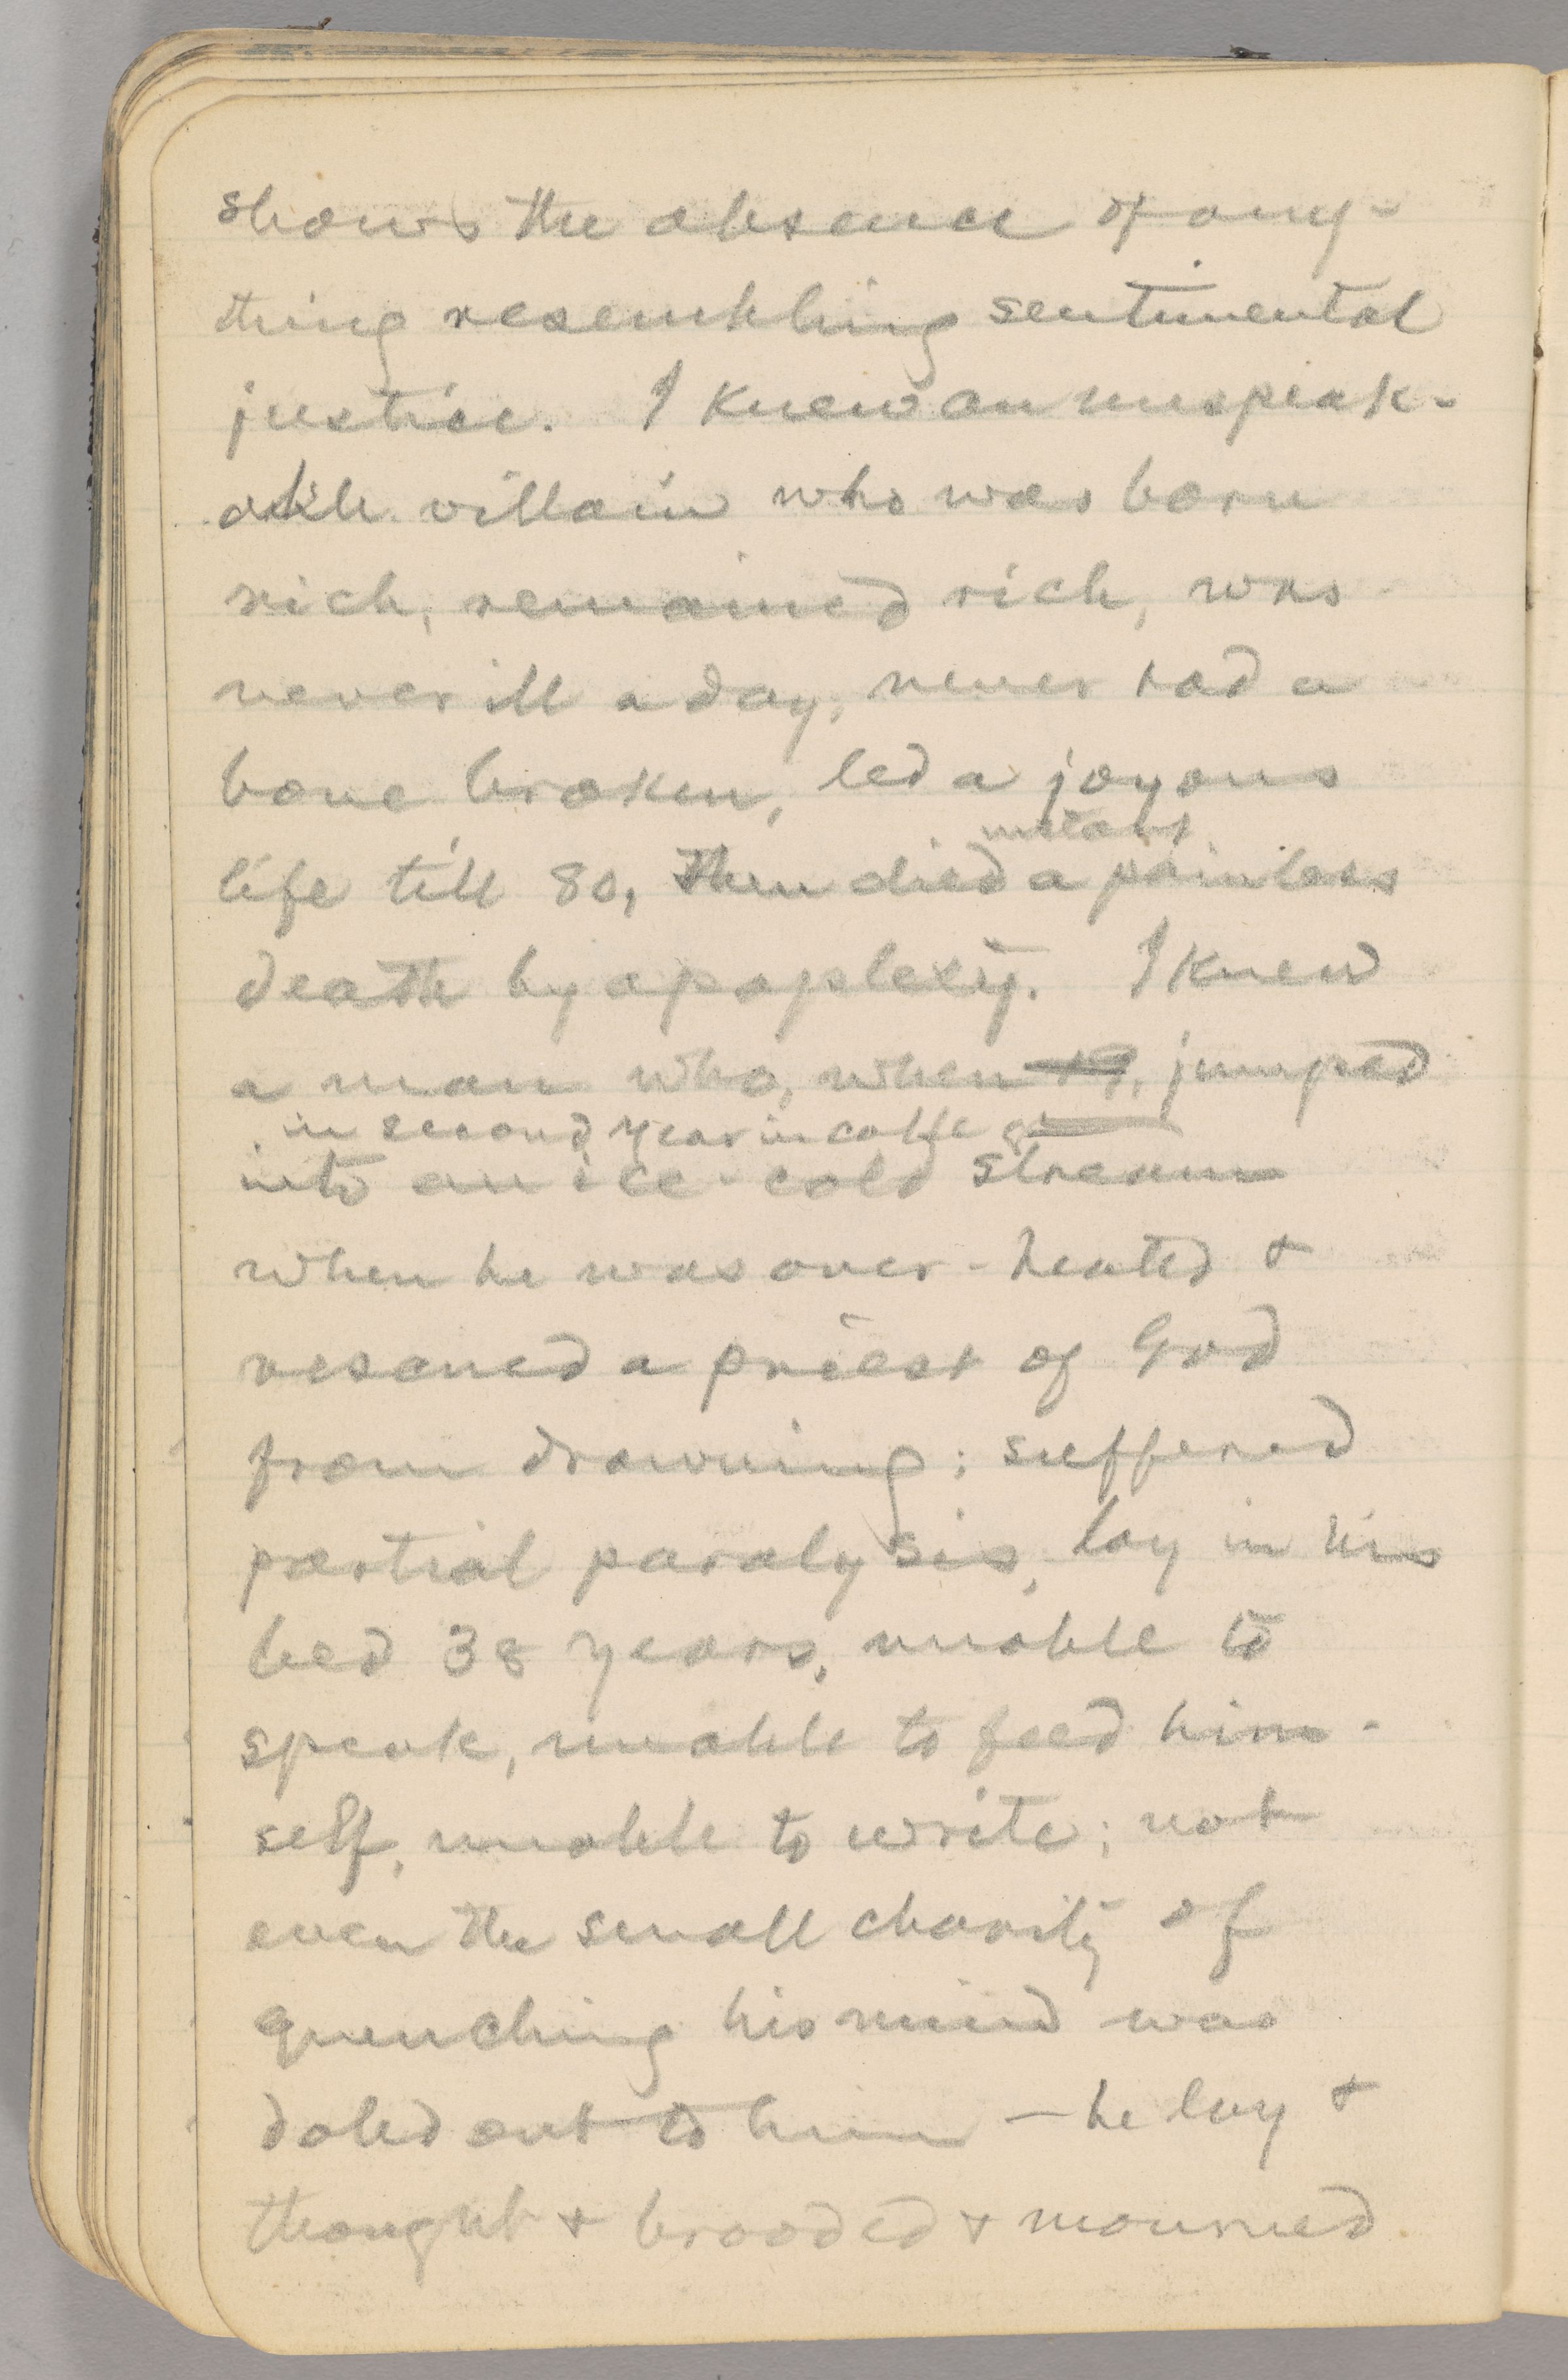 shows the absence of any-
thing resembling sentimental
justice. I knew an unspeak-
able villain who was born
rich, remained rich, was
never ill a day, never had a
bone broken, led a joyous
instant
life till 80, then died a painless
death by apoplexy. I knew
a man who, when 19, jumped
in second year in college
into an ice-cold stream
when he was over-heated &
rescued a priest of God
from drowning; suffered
partial paralysis, lay in his
bed 38 years, unable to
speak, unable to feed him-
self, unable to write; not
even the small charity of
quenching his mind was
doled out to him — he lay &
thought & brooded & mourned